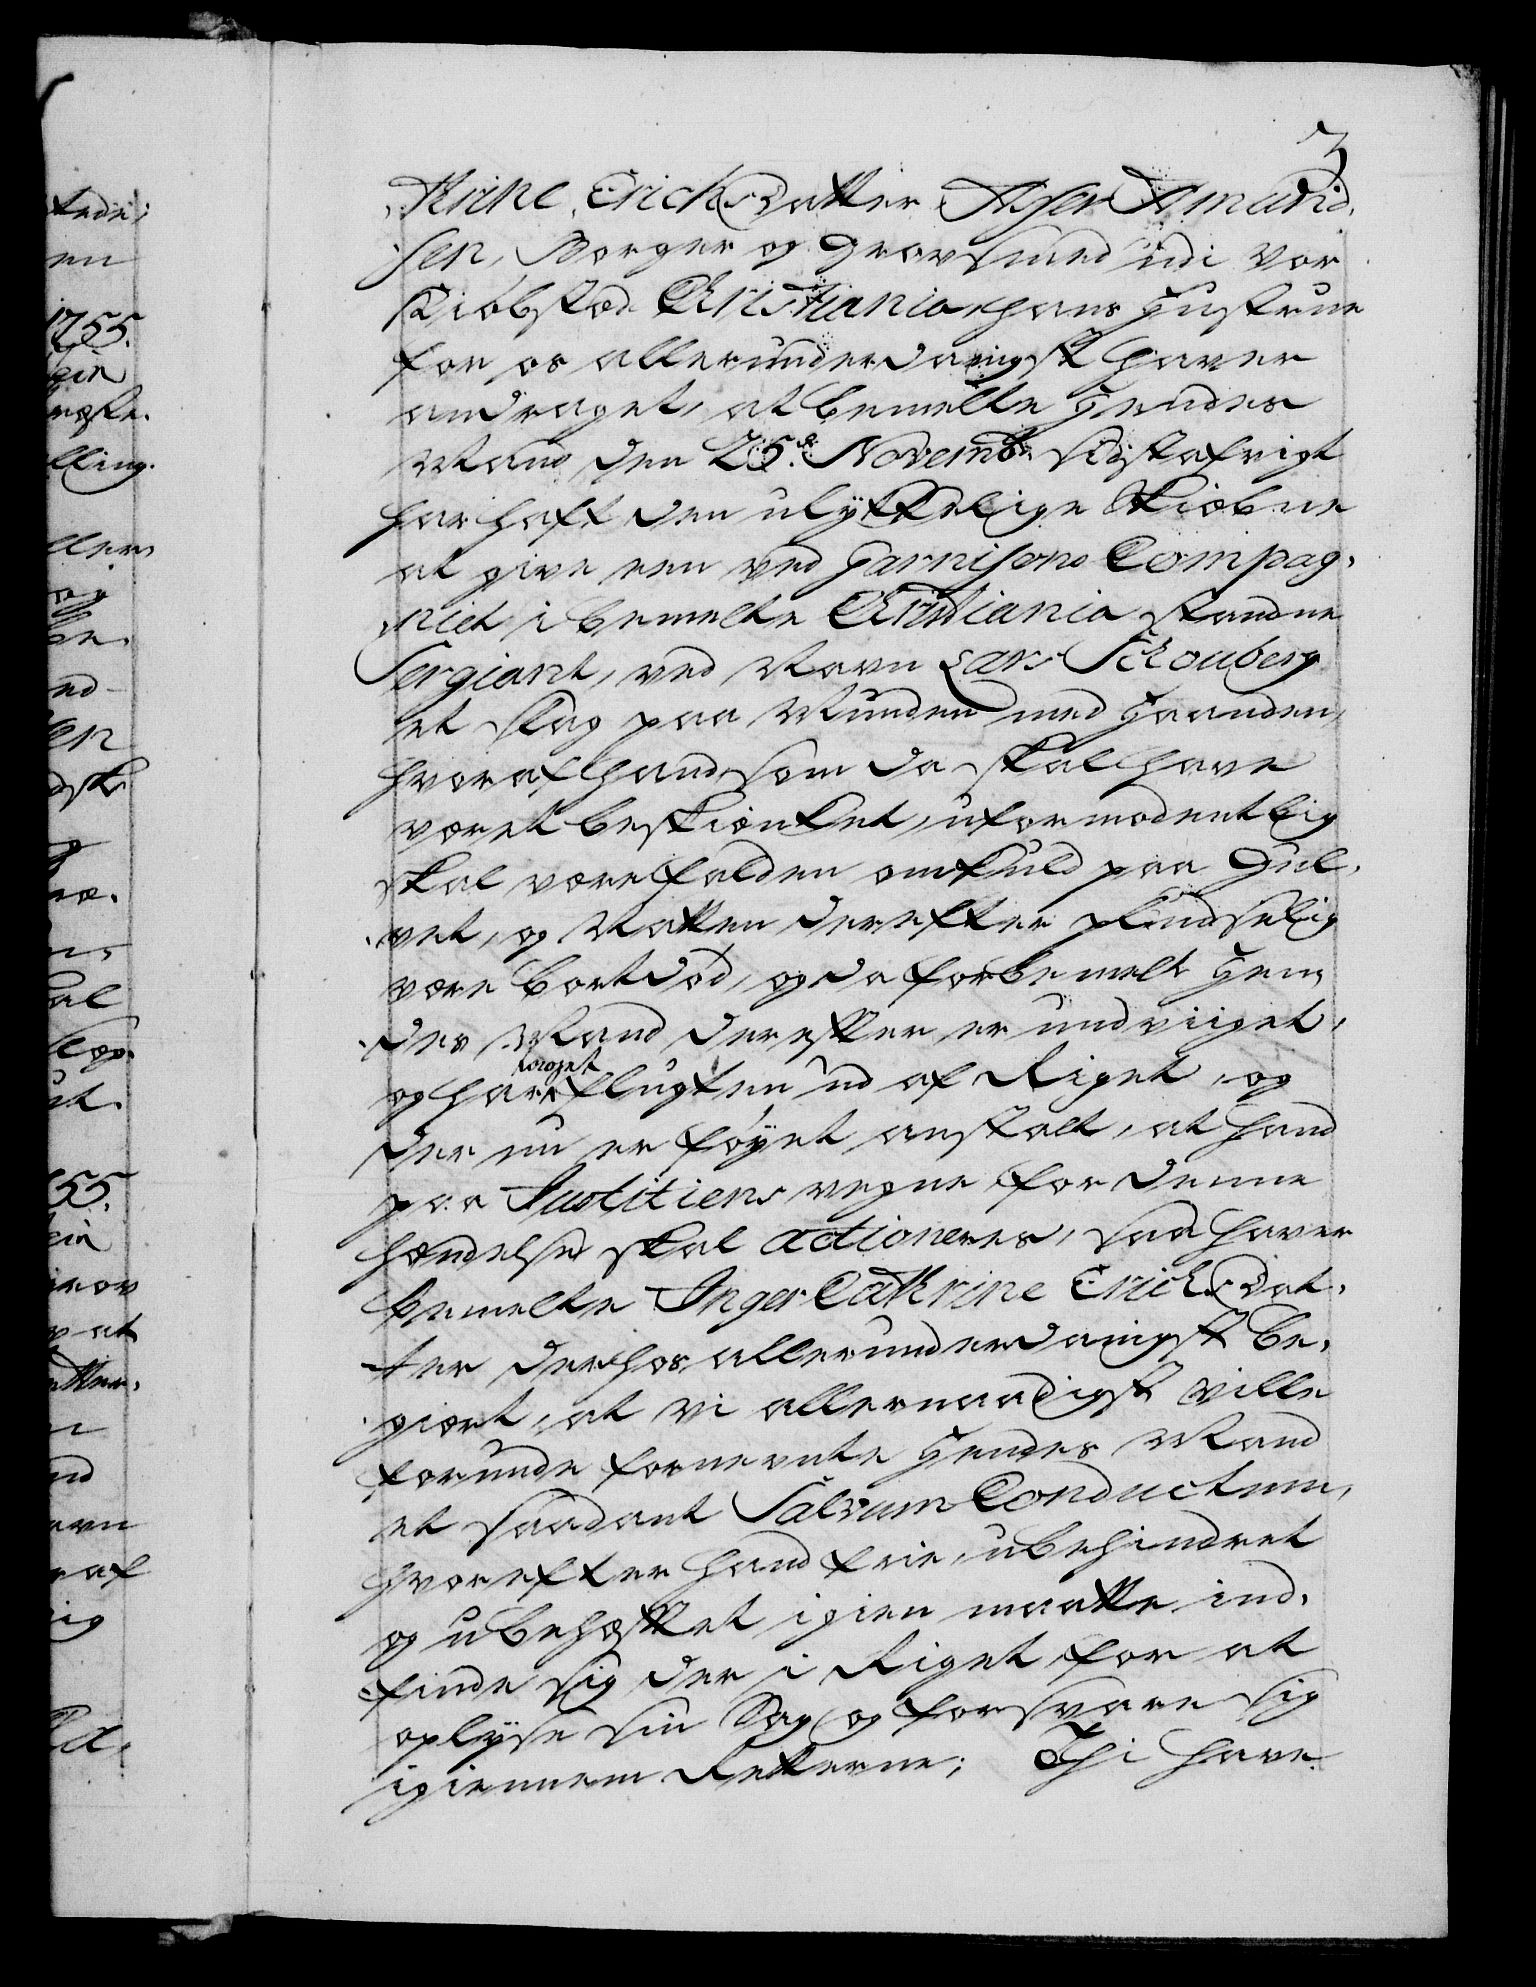 3
thrine Ericksdatter, Asser Amunds,
sen, Borger og Grovsmed udi vor
Kiöbstæd Christiania, hans Hustrue
for os allerunderdanigst haver
andraget, at bemelte Hendes
Mand den 25de Novembr: sidstafvigt
har haft den ulykkelige Skiæbne
at give een ved Garnisons Compag,
niet i bemelte Christiania standne
Sergiant, ved Navn Lars Schouberg
et slag paa Munden med Haanden,
hvoraf hand, som da skal have
været beskiænket, uformodentlig
skal være falden omkuld paa Gul,
vet, og Natten derefter pludselig
være bortdöd, og da forbemelte Hen,
des Mand derefter er undviiget,
og har taget flugten ud af Riget, og
der nu er föyet anstalt, at hand
paa Justitiens vegne for denne
hændelse skal actioneres, saa haver
bemelte Inger Cathrine Ericksdat,
ter derhos allerunderdanigst be,
giært, at vi allernaadigst ville
forunde fornevnte Hendes Mand
et saadant Salvum Conductum,
hvorefter hand frie, ubehindret
og ubehæftet igien maatte ind,
finde sig der i Riget for at
oplyse sin Sag og forsvare sig
igiennem Retterne; Thi have